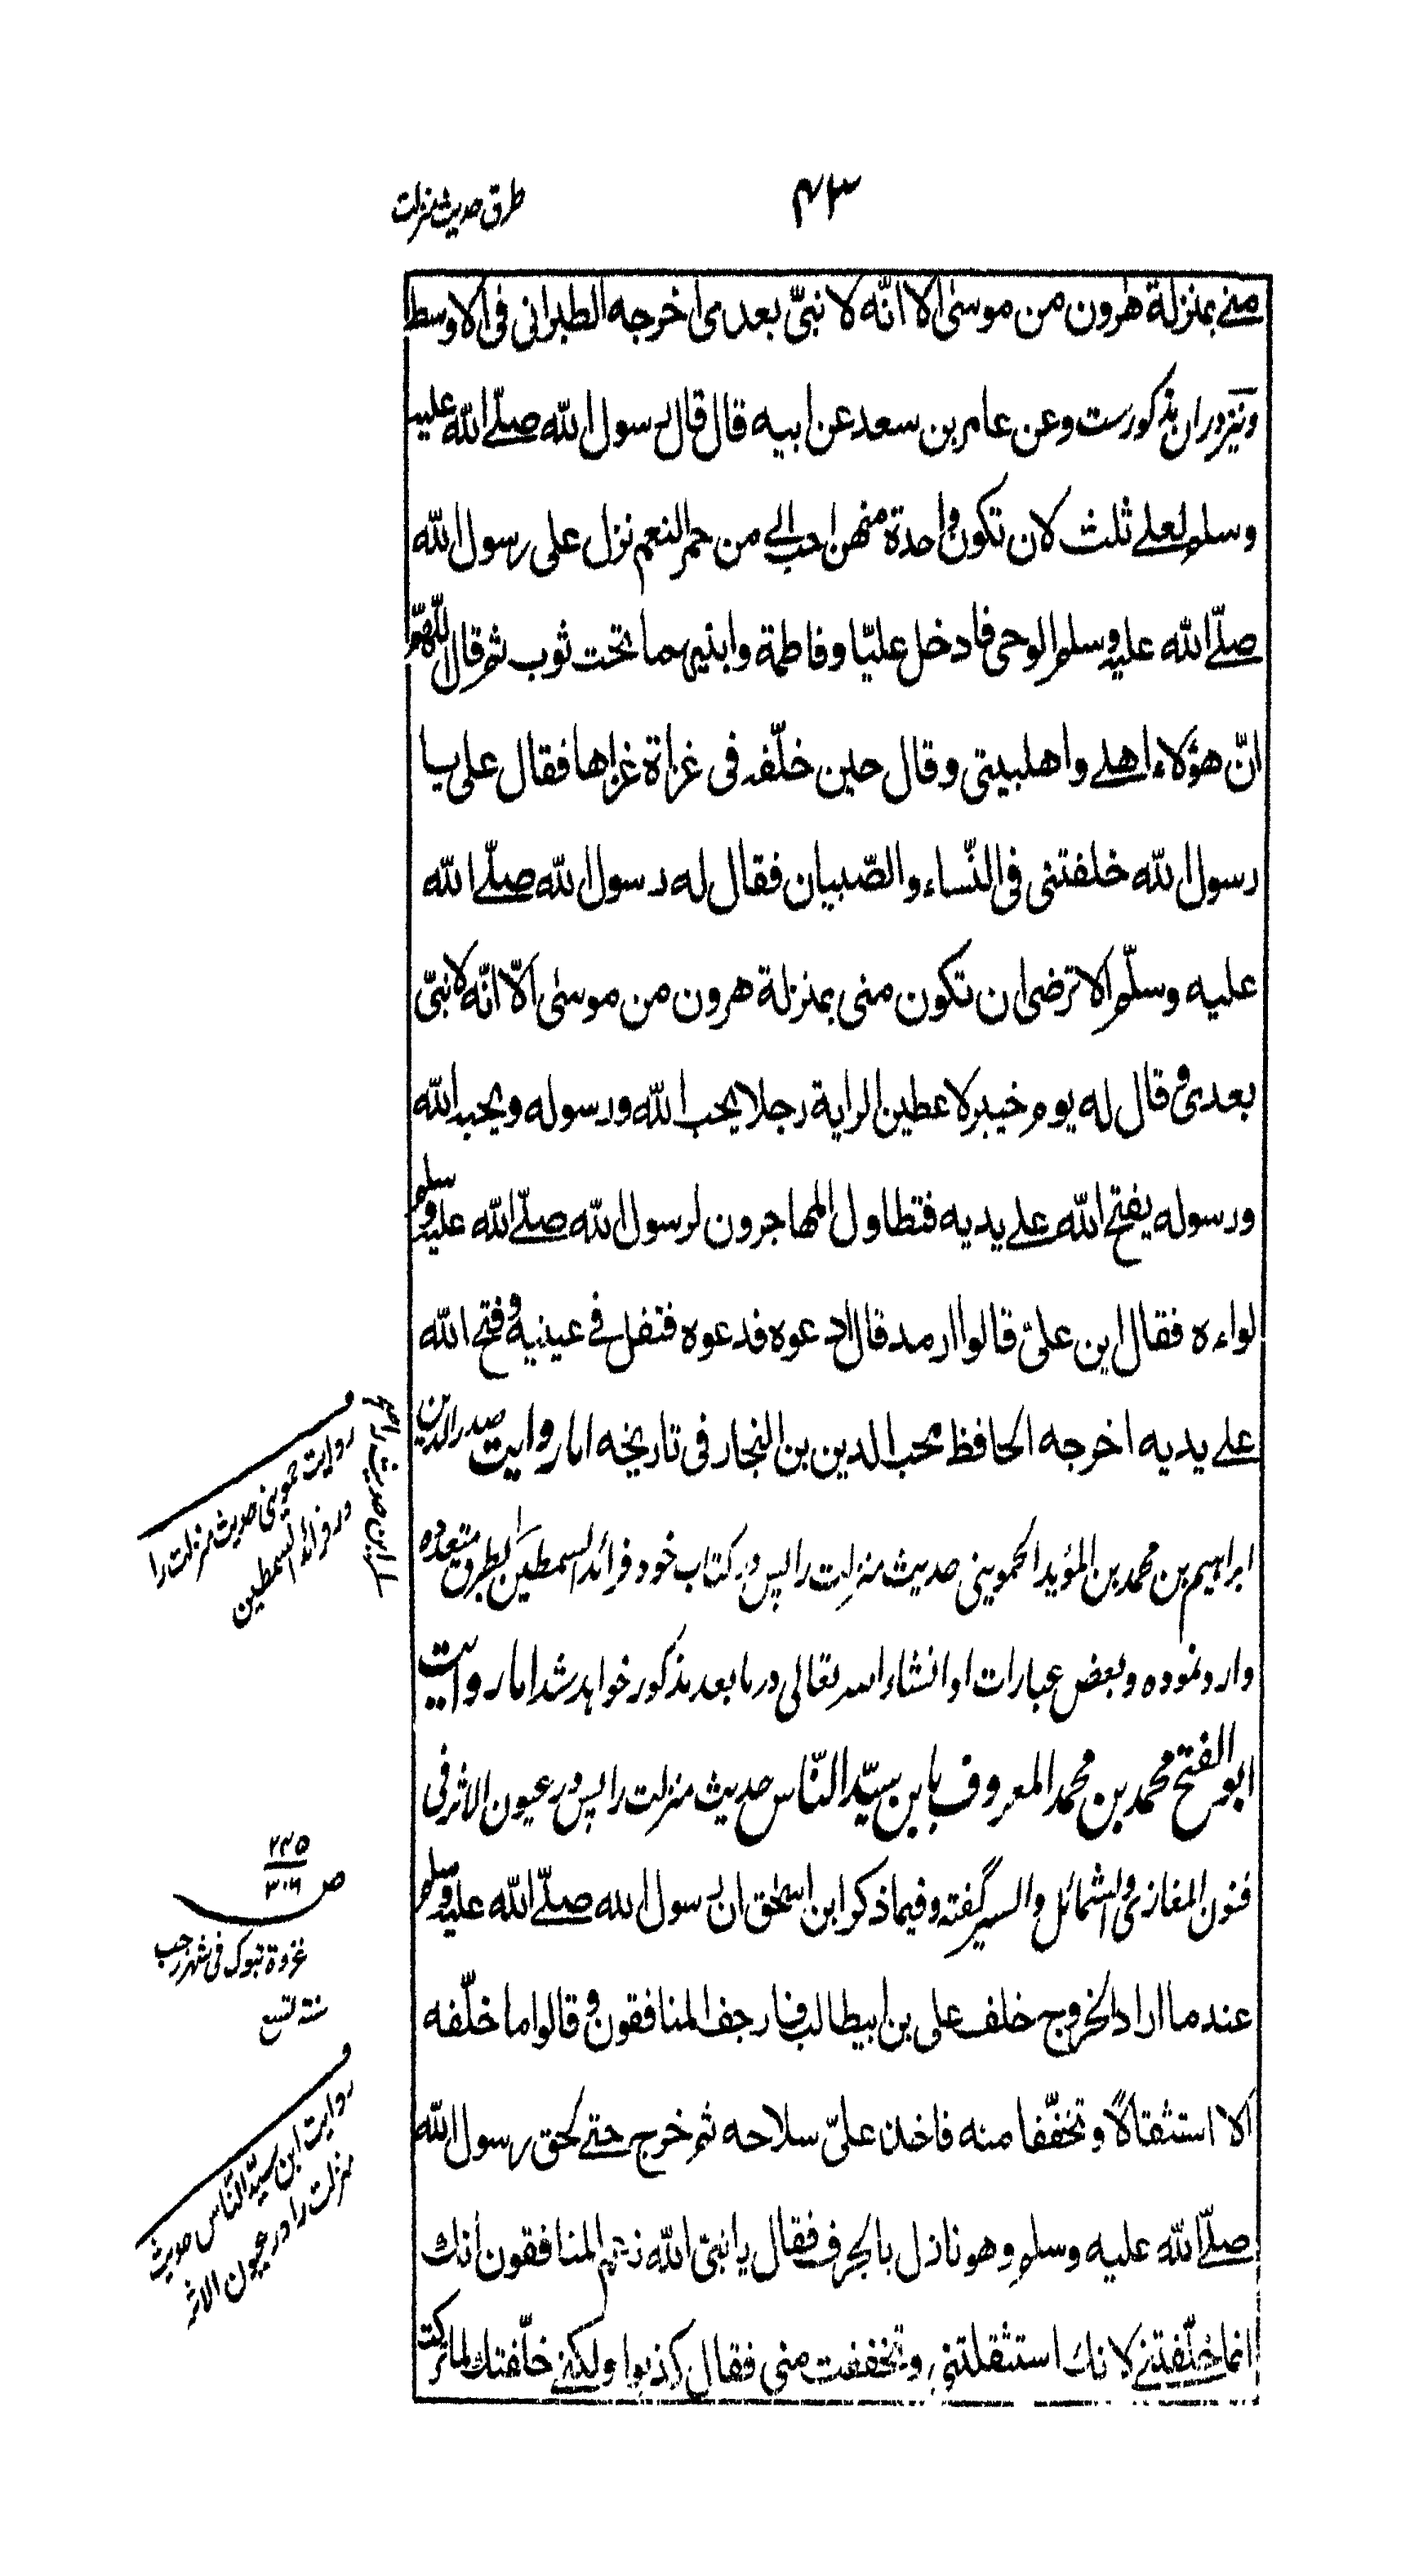 ۴۳
طرق حدیث منزلت
منے بمنزلة هٰرون من موسیٰ الا انّه لا نبیّ بعدی اخرجه الطبرانی فی الاوسط
و نیز دران مذکورست وعن عامر بن سعد عن ابیه قال قال رسول الله صلّے الله علیه
وسلم لعلے ثلث لان تکون واحدة منهن احب الے من حمر النعم نزل علی رسول الله
صلّے الله علیه وسلم الوحی فادخل علیّا وفاطمة وابنیهما تحت ثوب ثم قال اللّهمّ
انّ هؤلاء اهلے واهلبیتی وقال حین خلّفه فی غزاة غزاها فقال علی یا
رسول الله خلفتنی فی النّساء والصّبیان فقال له رسول الله صلّے الله
علیه وسلّم الا ترضی ان تکون منی بمنزلة هرون من موسیٰ الّا انّه لا نبیّ
بعدی وقال له یوم خیبر لاعطین الرایة رجلا یحب الله ورسوله ویحبه الله
ورسوله یفتح الله علے یدیه فتطاول المهاجرون لرسول الله صلّے الله علیه وسلم
لواءه فقال این علیّ قالوا ارمد قال ادعوه فدعوه فتفل فے عینیه وفتح الله
علے یدیه اخرجه الحافظ محب الدین بن النجار فی تاریخه اما روایت صدر الدین
ابراهیم بن محمد بن المؤید الحموینی حدیث منزلت را پس در کتاب خود فرائد السمطین بطرق متعدده
وارد نموده و بعض عبارات او انشاء الله تعالی در ما بعد مذکور خواهد شد اما روایت
ابو الفتح محمد بن محمد المعروف بابن سیّد النّاس حدیث منزلت را پس در عیون الاثر فی
فنون المغازی والشمائل والسیر گفته وفیما ذکر ابن اسحٰق ان رسول الله صلّے الله علیه وسلم
عندما اراد الخروج خلف علی بن ابیطالب فارجف المنافقون وقالوا ما خلّفه
الا استثقالًا وتخفّفا منه فاخذ علیّ سلاحه ثم خرج حتے لحق رسول الله
صلّے الله علیه وسلم وهو نازل بالجرف فقال یا نبیّ الله زعم المنافقون انك
انما خلّفتنے لانك استثقلتنی وتخففت منی فقال کذبوا ولکنے خلّفتك لما ترکت
روایت حموینی حدیث منزلت را
در فرائد السمطین
ص ۲۴۵
۳۰۶
غزوة تبوک فی شهر رجب
سنة تسع
روایت ابن سیّد النّاس حدیث
منزلت را در عیون الاثر